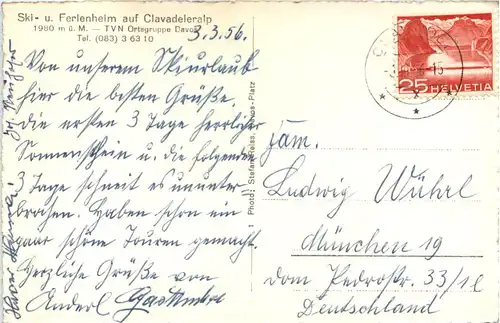 Ski- u. Ferienheim auf Clavadeleralp
1980 m ü. M. — TVN Ortsgruppe Davos
Tel. (083) 3 63 10
3.3.56.
Von unserem Skiurlaub
hier die besten Grüße,
die ersten 3 Tage herrlicher
Sonnenschein u. die folgenden
3 Tage schneit es ununter
brochen. Haben schon ein
paar schöne Touren gemacht.
Herzliche Grüße von
Anderl
1 Photo: Stefan
25 HELVETIA
Fam.
Ludwig Wührl
München 19
Dom Pedrostr. 33/II
Deutschland